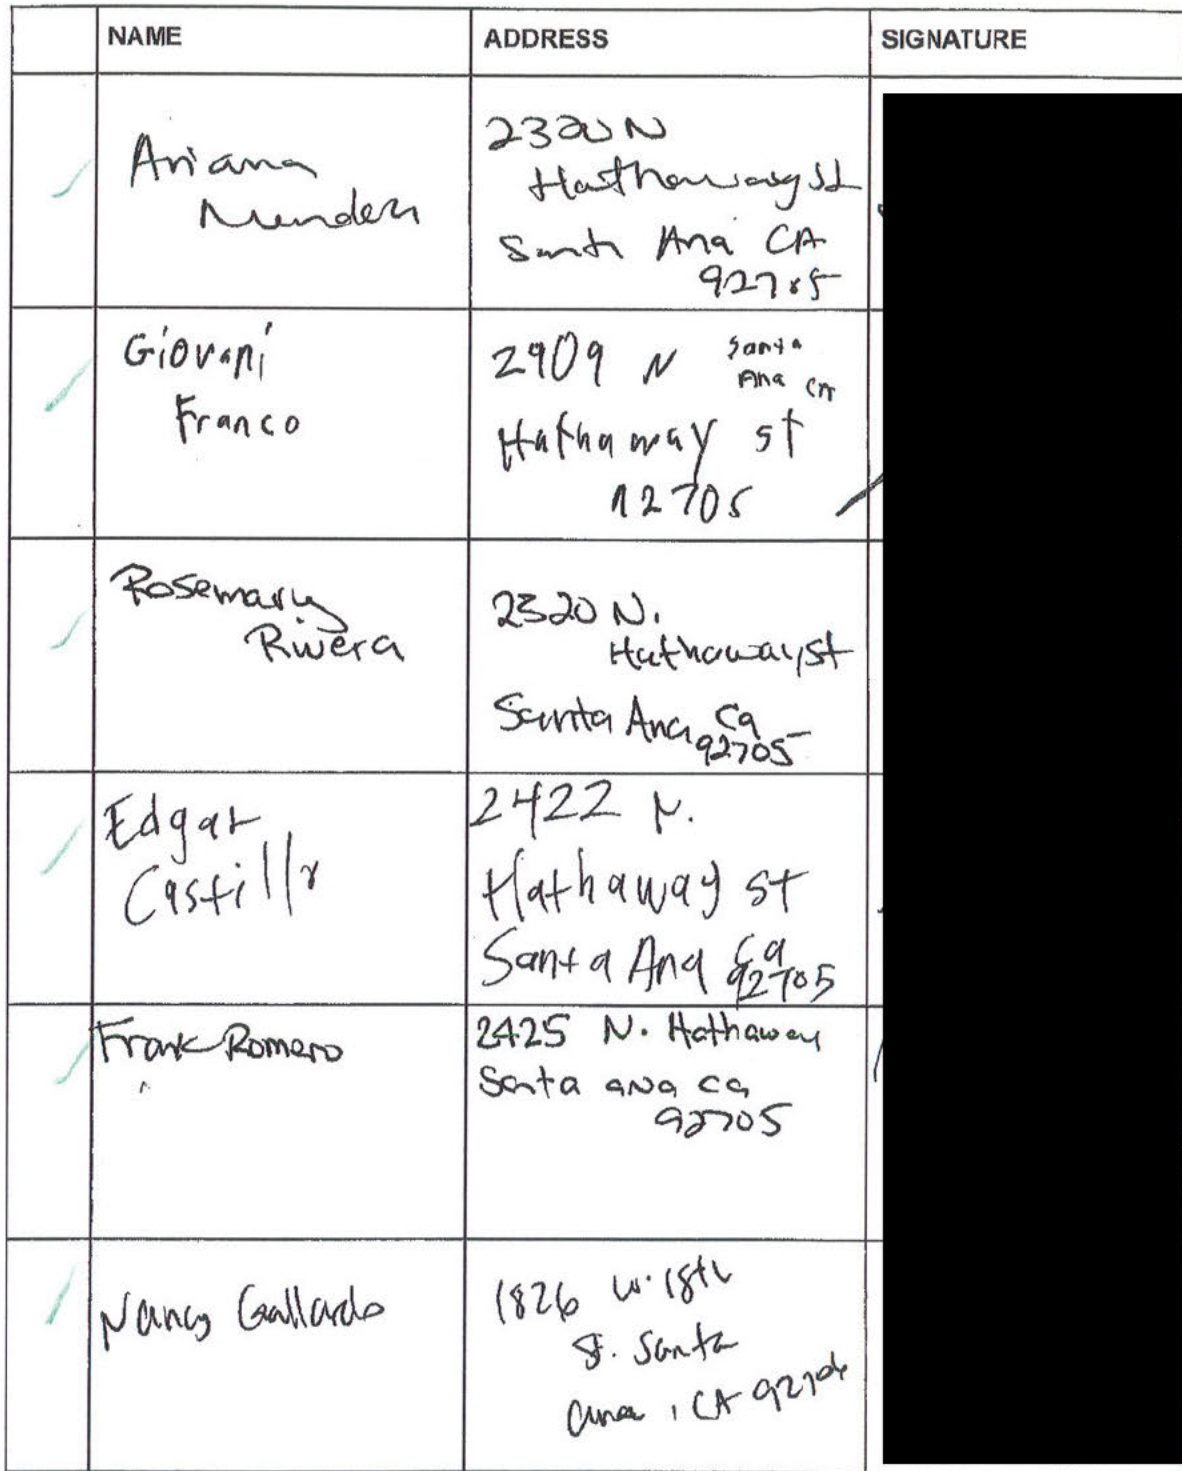 NAME ADDRESS SIGNATURE
Ariana
Mendez
2320 N
Hathaway St
Santa Ana CA
92705
Giovani
Franco
2909 N Santa
Ana CA
Hathaway st
92705
Rosemary
Rivera
2320 N.
Hathaway St
Santa Ana Ca
92705
Edgar
Castillo
2422 N.
Hathaway st
Santa Ana Ca
92705
Frank Romero
2425 N. Hathaway
Santa ana ca
92705
Nancy Gallardo
1826 W. 18th
St. Santa
ana, CA 92706